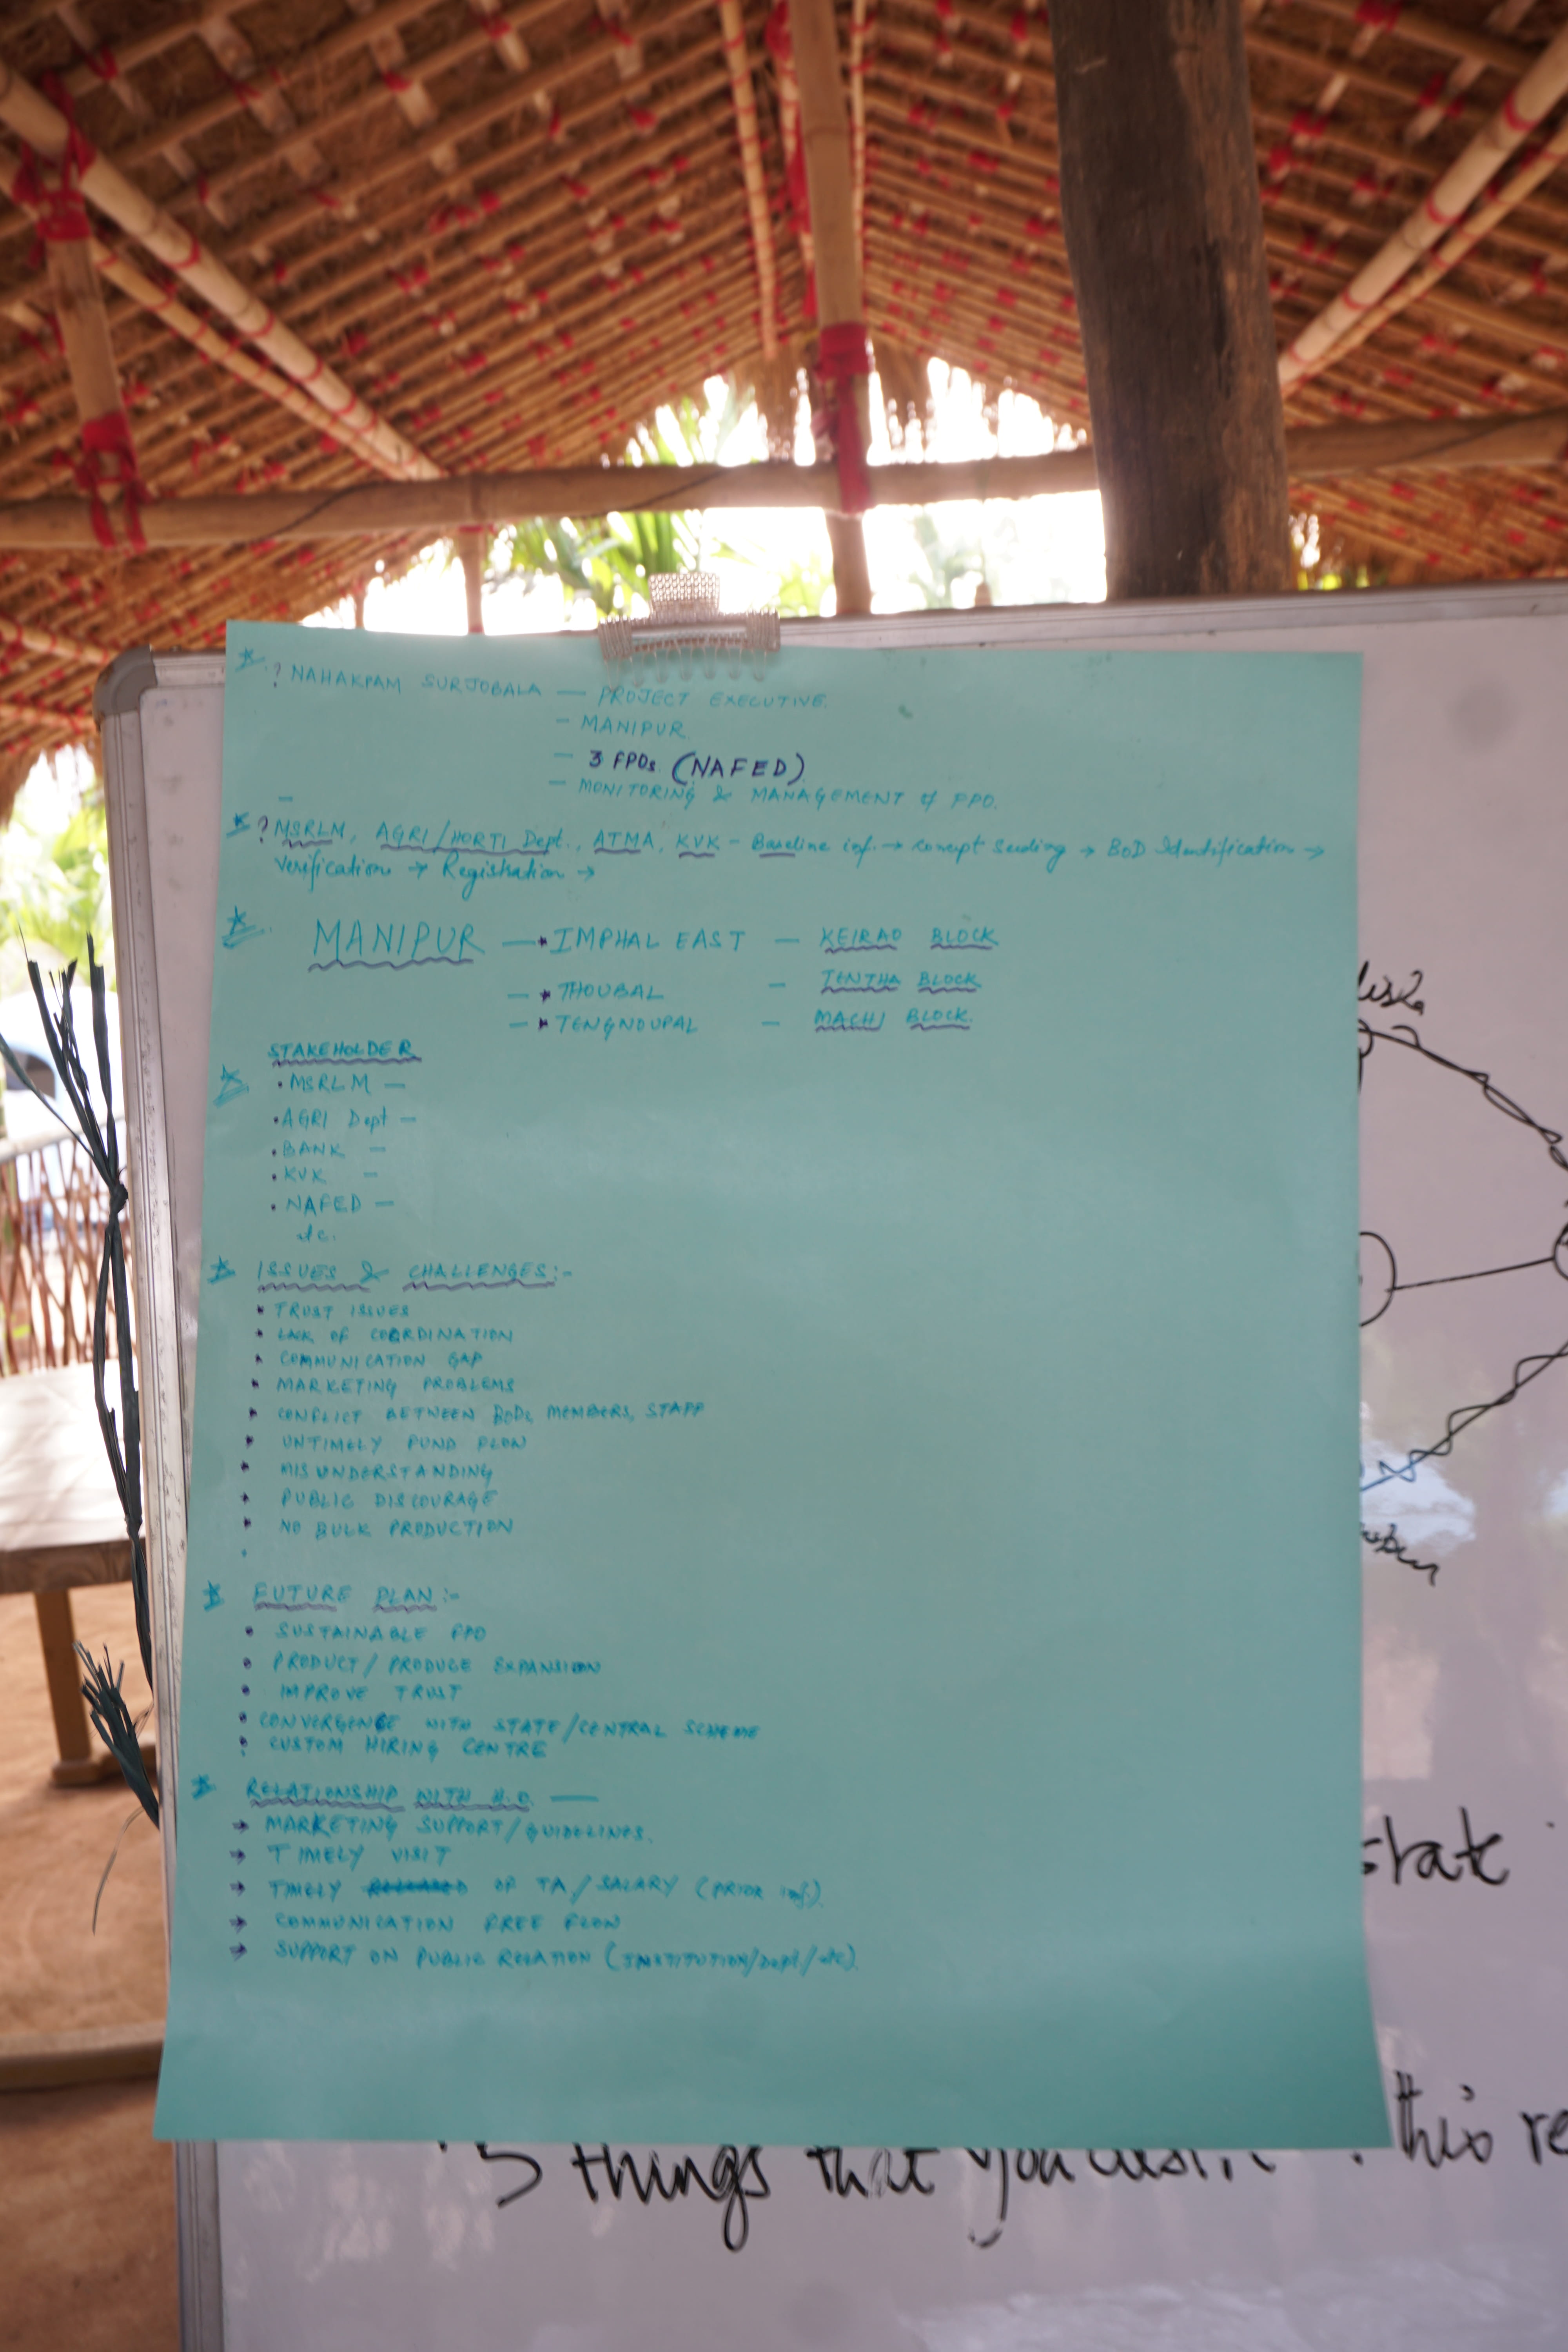 * ? NAHAKPAM SURJOBALA — PROJECT EXECUTIVE.
— MANIPUR.
— 3 FPOs. (NAFED)
— MONITORING & MANAGEMENT of FPO.
* ? MSRLM, AGRI/HORTI Dept., ATMA, KVK - Baseline inf. → concept seeding → BOD Identification →
verification → Registration →
* MANIPUR — * IMPHAL EAST — KEIRAO BLOCK
— * THOUBAL — TENTHA BLOCK
— * TENGNOUPAL — MACHI BLOCK.
STAKEHOLDER
* • MSRLM —
• AGRI Dept —
• BANK —
• KVK —
• NAFED —
etc.
* ISSUES & CHALLENGES:-
• TRUST ISSUES
• LACK OF COORDINATION
• COMMUNICATION GAP
• MARKETING PROBLEMS
• CONFLICT BETWEEN BODs, MEMBERS, STAFF
• UNTIMELY FUND FLOW
• MISUNDERSTANDING
• PUBLIC DISCOURAGE
• NO BULK PRODUCTION
•
* FUTURE PLAN:-
• SUSTAINABLE FPO
• PRODUCT/PRODUCE EXPANSION
• IMPROVE TRUST
• CONVERGENCE WITH STATE/CENTRAL SCHEME
• CUSTOM HIRING CENTRE
* RELATIONSHIP WITH H.O. —
→ MARKETING SUPPORT/GUIDELINES.
→ TIMELY VISIT
→ TIMELY OF TA/SALARY (PRIOR inf.)
→ COMMUNICATION FREE FLOW
→ SUPPORT ON PUBLIC RELATION (INSTITUTION/Dept./etc).
state
5 things that you this re